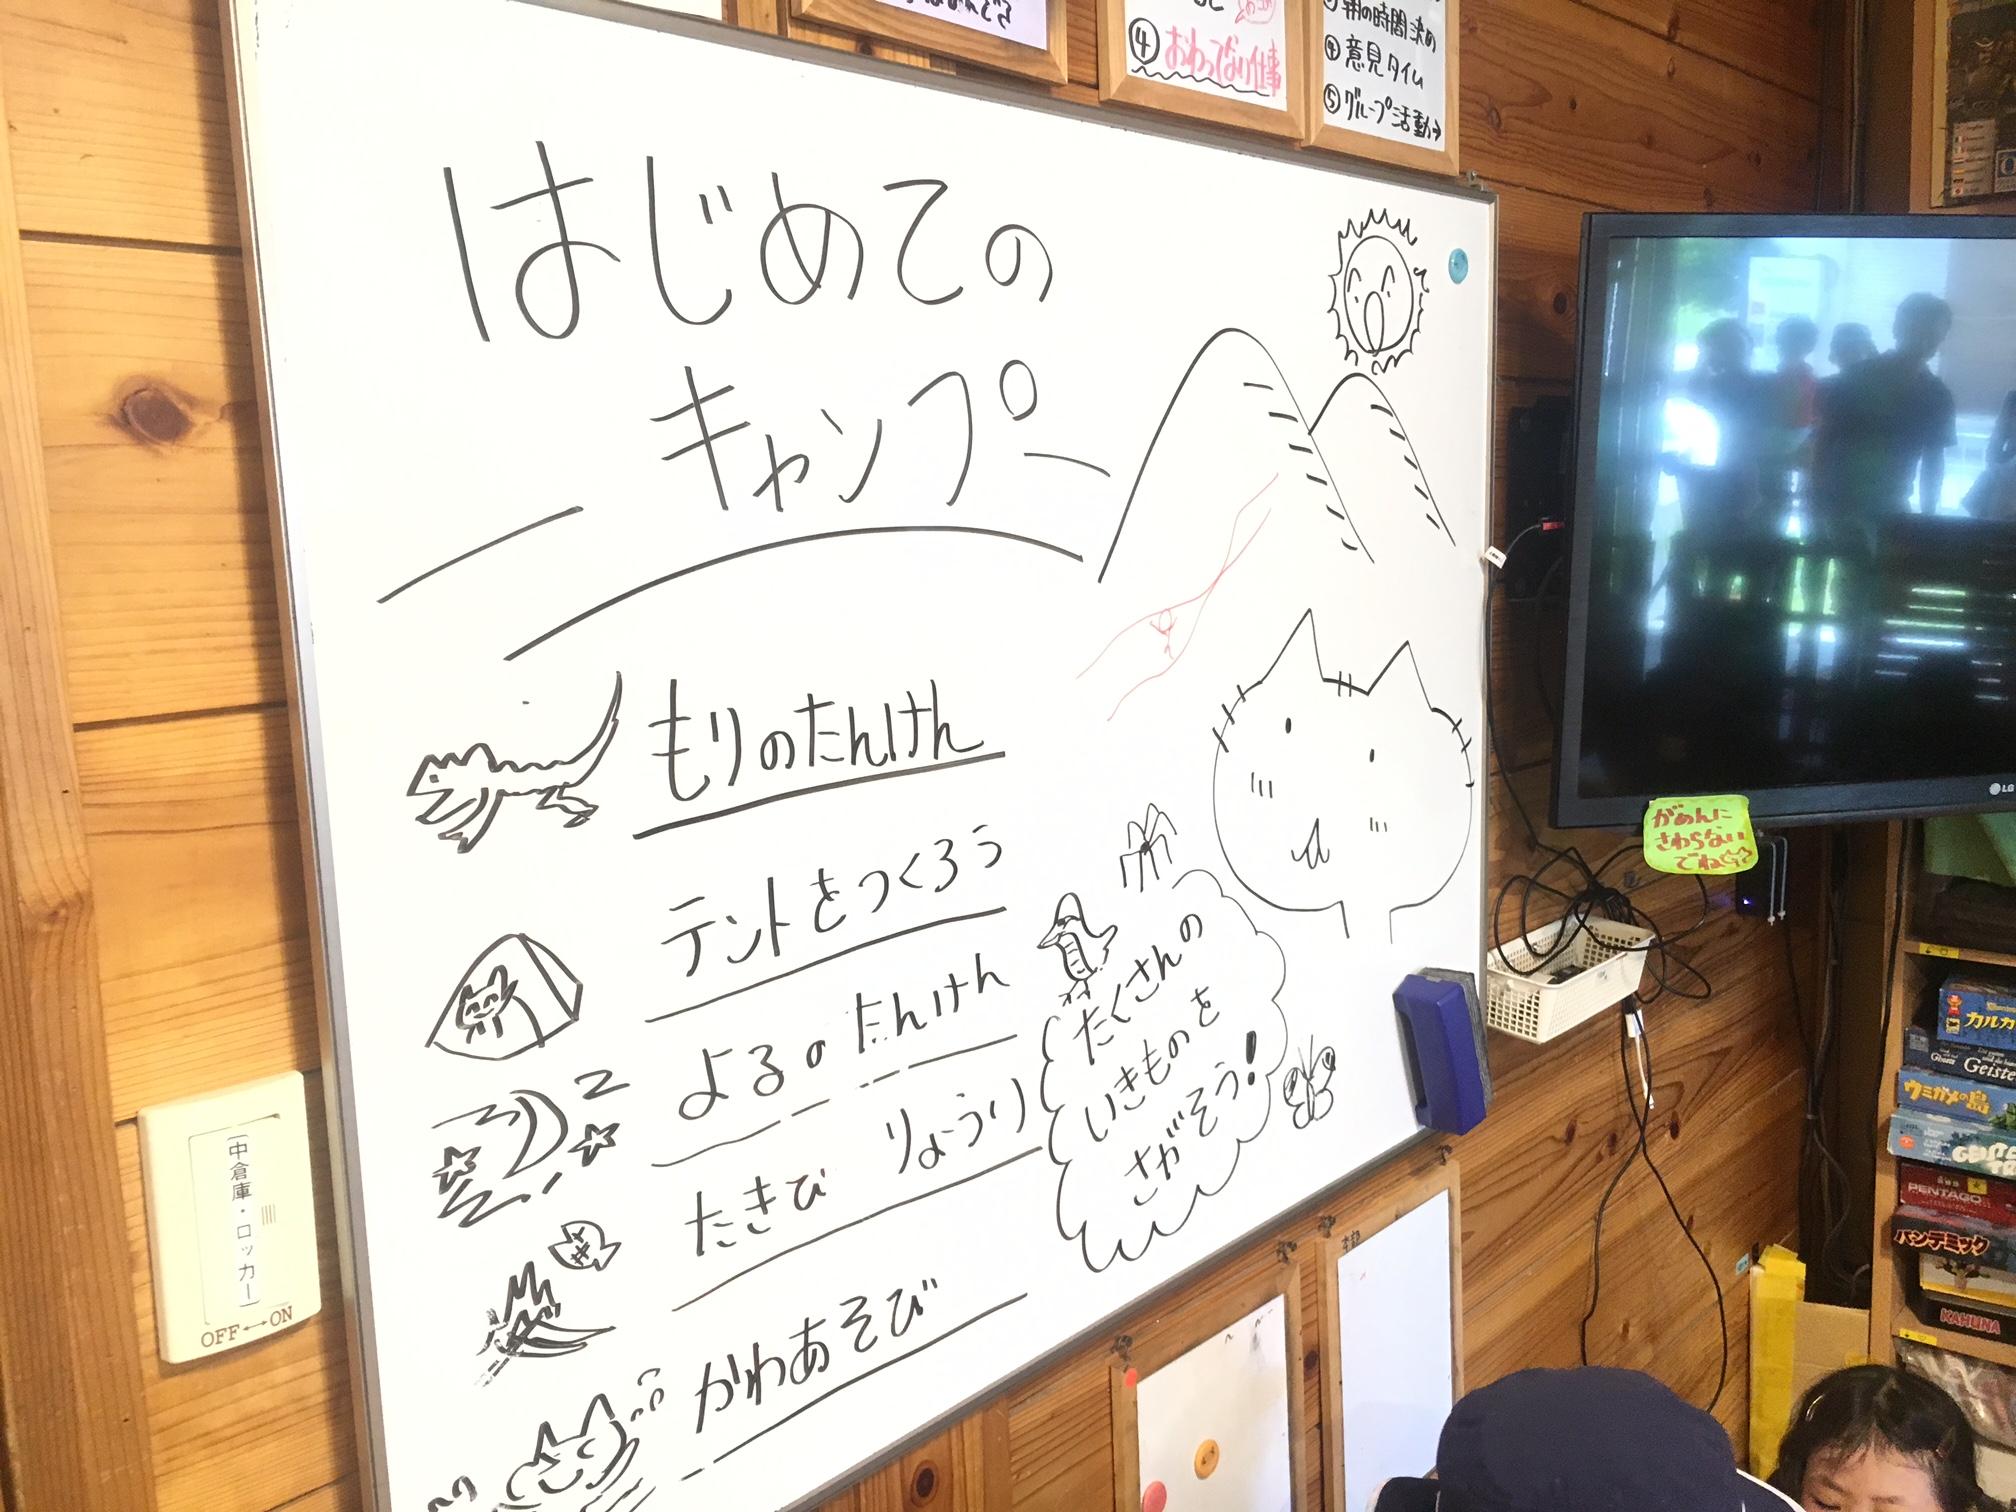 ④おわってない仕事
朝の時間決め
④意見タイム
⑤グループ活動→
はじめての
キャンプ
もりのたんけん
テントをつくろう
よるのたんけん
たきび りょうり
かわあそび
たくさんの
いきものを
さがそう!
がめんに
さわらない
でね
LG
中倉庫・ロッカー
OFF↔ON
カルカ
Geiste
ウミガメの島
PENTAGO
パンデミック
KAHUNA